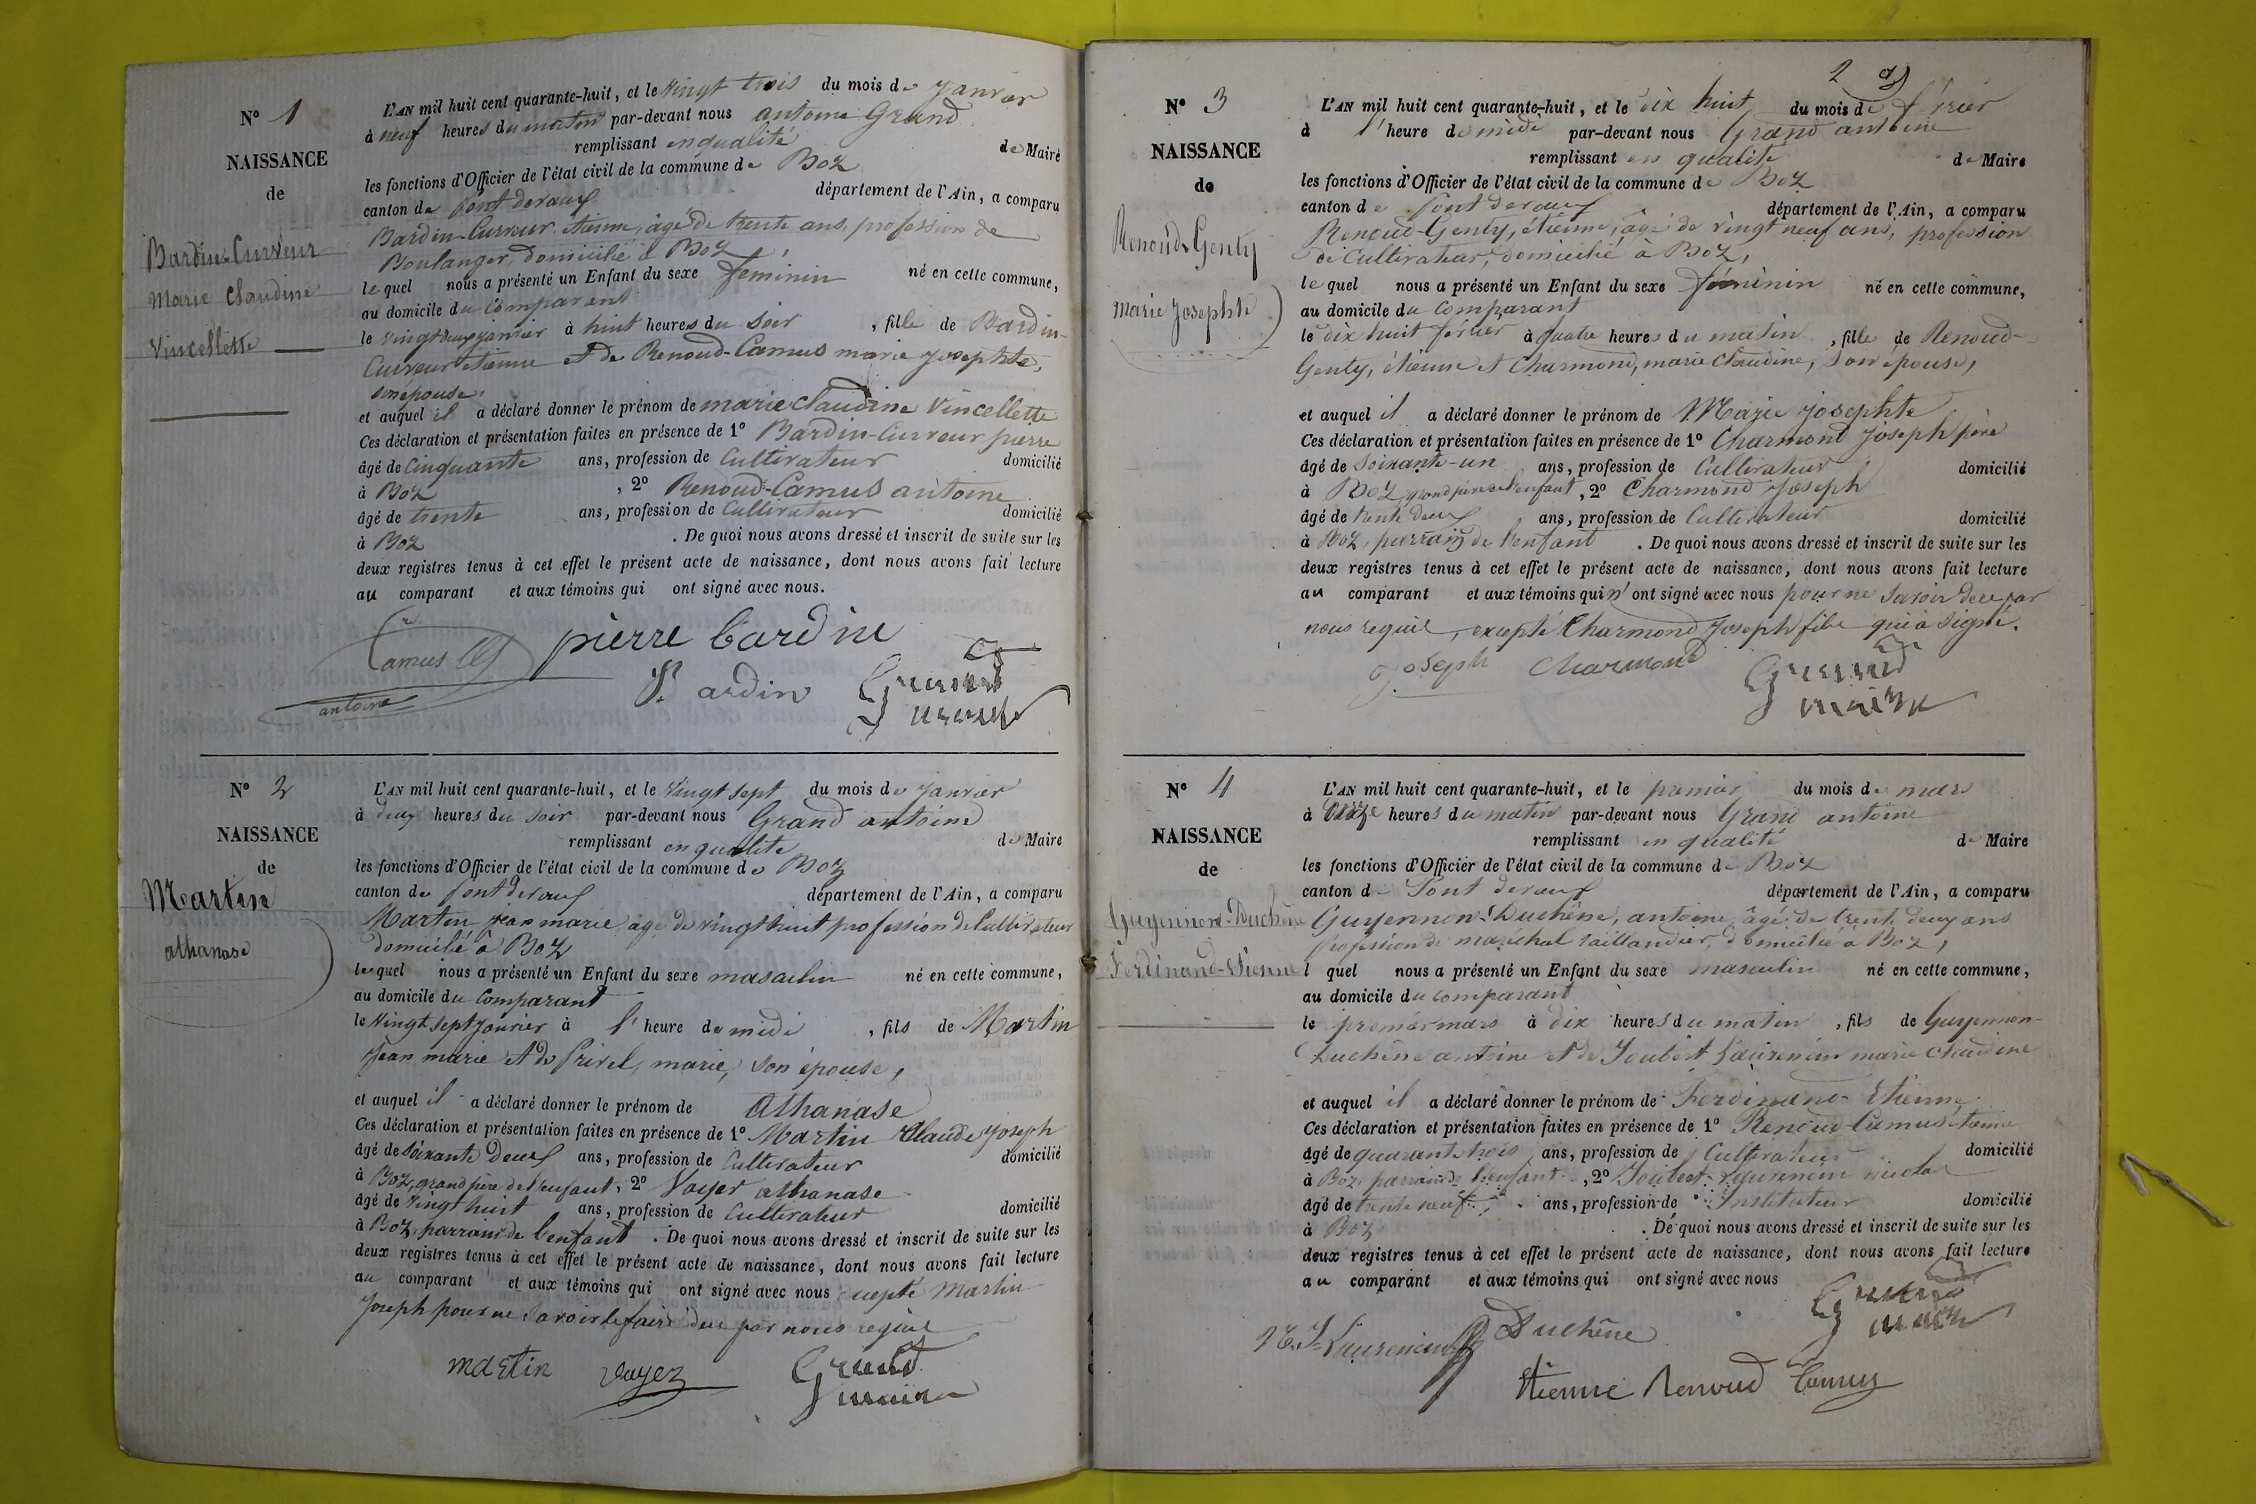 N° 1
NAISSANCE
de
Bardin-Curveur
Marie Claudine
Vincellette
L'AN mil huit cent quarante-huit, et le vingt trois du mois de Janvier
à neuf heures du matin par-devant nous antoine Grand
remplissant en qualité de Maire
les fonctions d'Officier de l'état civil de la commune de Boz
canton de pont devaux département de l'Ain, a comparu
Bardin-Curveur étienne, âgé de trente ans, profession de
Boulanger, domicilié à Boz
lequel nous a présenté un Enfant du sexe féminin né en cette commune,
au domicile du comparant
le vingt deux janvier à huit heures du soir, fille de Bardin-
Curveur étienne et de Renoud-Camus marie josephte,
son épouse,
et auquel il a déclaré donner le prénom de marie claudine Vincellette
Ces déclaration et présentation faites en présence de 1° Bardin-Curveur pierre
âgé de cinquante ans, profession de cultivateur domicilié
à Boz, 2° Renoud-Camus antoine
âgé de trente ans, profession de cultivateur domicilié
à Boz. De quoi nous avons dressé et inscrit de suite sur les
deux registres tenus à cet effet le présent acte de naissance, dont nous avons fait lecture
au comparant et aux témoins qui ont signé avec nous.
Camus pierre bardin
antoine Bardin Grand
maire
N° 2
NAISSANCE
de
Martin
athanase
L'AN mil huit cent quarante-huit, et le vingt sept du mois de janvier
à deux heures du soir par-devant nous Grand antoine
remplissant en qualité de Maire
les fonctions d'Officier de l'état civil de la commune de Boz
canton de pont devaux département de l'Ain, a comparu
Martin jean marie, âgé de vingt huit profession de Cultivateur
domicilié à Boz
lequel nous a présenté un Enfant du sexe masculin né en cette commune,
au domicile du comparant
le vingt sept janvier à l'heure de midi, fils de Martin
Jean marie et de Privel, marie, son épouse,
et auquel il a déclaré donner le prénom de Athanase
Ces déclaration et présentation faites en présence de 1° Martin Claude Joseph
âgé de soixante deux ans, profession de Cultivateur domicilié
à Boz, grand père de l'enfant, 2° Voyer athanase
âgé de vingt huit ans, profession de cultivateur domicilié
à Boz, parrain de l'enfant. De quoi nous avons dressé et inscrit de suite sur les
deux registres tenus à cet effet le présent acte de naissance, dont nous avons fait lecture
au comparant et aux témoins qui ont signé avec nous excepté Martin
Joseph pour ne savoir le faire de ce par nous requit
martin Voyer Grand
maire
2
N° 3
NAISSANCE
de
Renoud-Genty
marie Josephte
L'AN mil huit cent quarante-huit, et le dix huit du mois de février
à l'heure de midi par-devant nous Grand antoine
remplissant en qualité de Maire
les fonctions d'Officier de l'état civil de la commune de Boz
canton de pont devaux département de l'Ain, a comparu
Renoud-Genty, étienne, âgé de vingt neuf ans, profession
de Cultivateur, domicilié à Boz,
lequel nous a présenté un Enfant du sexe féminin né en cette commune,
au domicile du comparant
le dix huit février à quatre heures du matin, fille de Renoud-
Genty, étienne et Charmond, marie Claudine, son épouse,
et auquel il a déclaré donner le prénom de Marie josephte
Ces déclaration et présentation faites en présence de 1° Charmond Joseph père
âgé de soixante-un ans, profession de Cultivateur domicilié
à Boz grand père de l'enfant, 2° Charmond Joseph
âgé de trente deux ans, profession de Cultivateur domicilié
à Boz, parrain de l'enfant. De quoi nous avons dressé et inscrit de suite sur les
deux registres tenus à cet effet le présent acte de naissance, dont nous avons fait lecture
au comparant et aux témoins qui n'ont signé avec nous pour ne savoir de ce par
nous requit, excepté Charmond Joseph fils qui a signé.
Joseph Charmond Grand
maire
N° 4
NAISSANCE
de
Guyennon-Duchêne
Ferdinand-étienne
L'AN mil huit cent quarante-huit, et le premier du mois de mars
à onze heures du matin par-devant nous Grand antoine
remplissant en qualité de Maire
les fonctions d'Officier de l'état civil de la commune de Boz
canton de Pont devaux département de l'Ain, a comparu
Guyennon-Duchêne, antoine, âgé de trente deux ans
profession de maréchal taillandier, domicilié à Boz,
l quel nous a présenté un Enfant du sexe masculin né en cette commune,
au domicile du comparant
le premier mars à dix heures du matin, fils de Guyennon-
Duchêne antoine et de Joubert Laurencin marie claudine
et auquel il a déclaré donner le prénom de Ferdinand-Etienne
Ces déclaration et présentation faites en présence de 1° Renoud-Camus étienne
âgé de quarante trois ans, profession de Cultivateur domicilié
à Boz, parrain de l'enfant, 2° Joubert-Laurencin
âgé de trente neuf ans, profession de Instituteur domicilié
à Boz. De quoi nous avons dressé et inscrit de suite sur les
deux registres tenus à cet effet le présent acte de naissance, dont nous avons fait lecture
au comparant et aux témoins qui ont signé avec nous
Grand
maire
Laurencin Duchêne
Etienne Renoud Camus